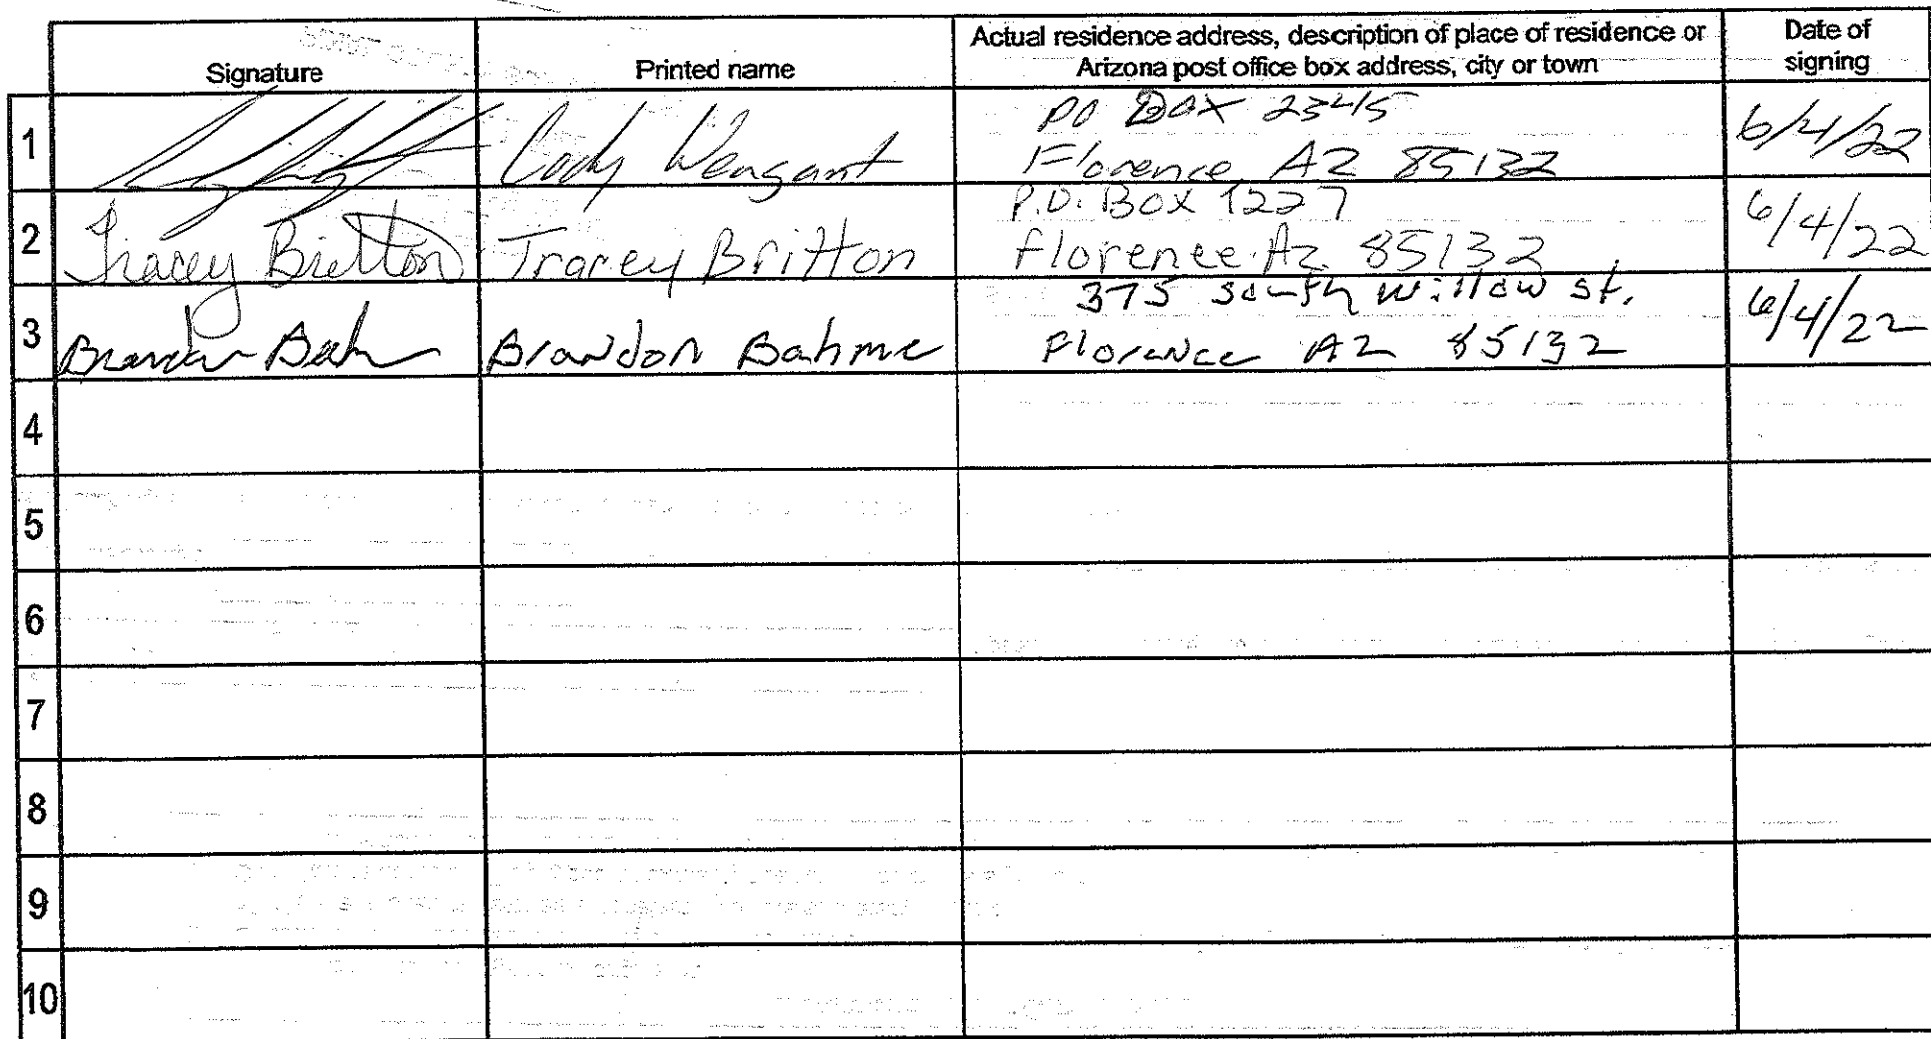 Signature
Printed name
Actual residence address, description of place of residence or
Arizona post office box address, city or town
Date of
signing
1
Cody Weagant
PO BOX 23415
Florence AZ 85132
6/4/22
2
Tracey Britton
Tracey Britton
P.O. BOX 1227
Florence Az. 85132
6/4/22
3
Brandon Bah
Brandon Bahme
375 south willow st.
Florence AZ 85132
6/4/22
4
5
6
7
8
9
10